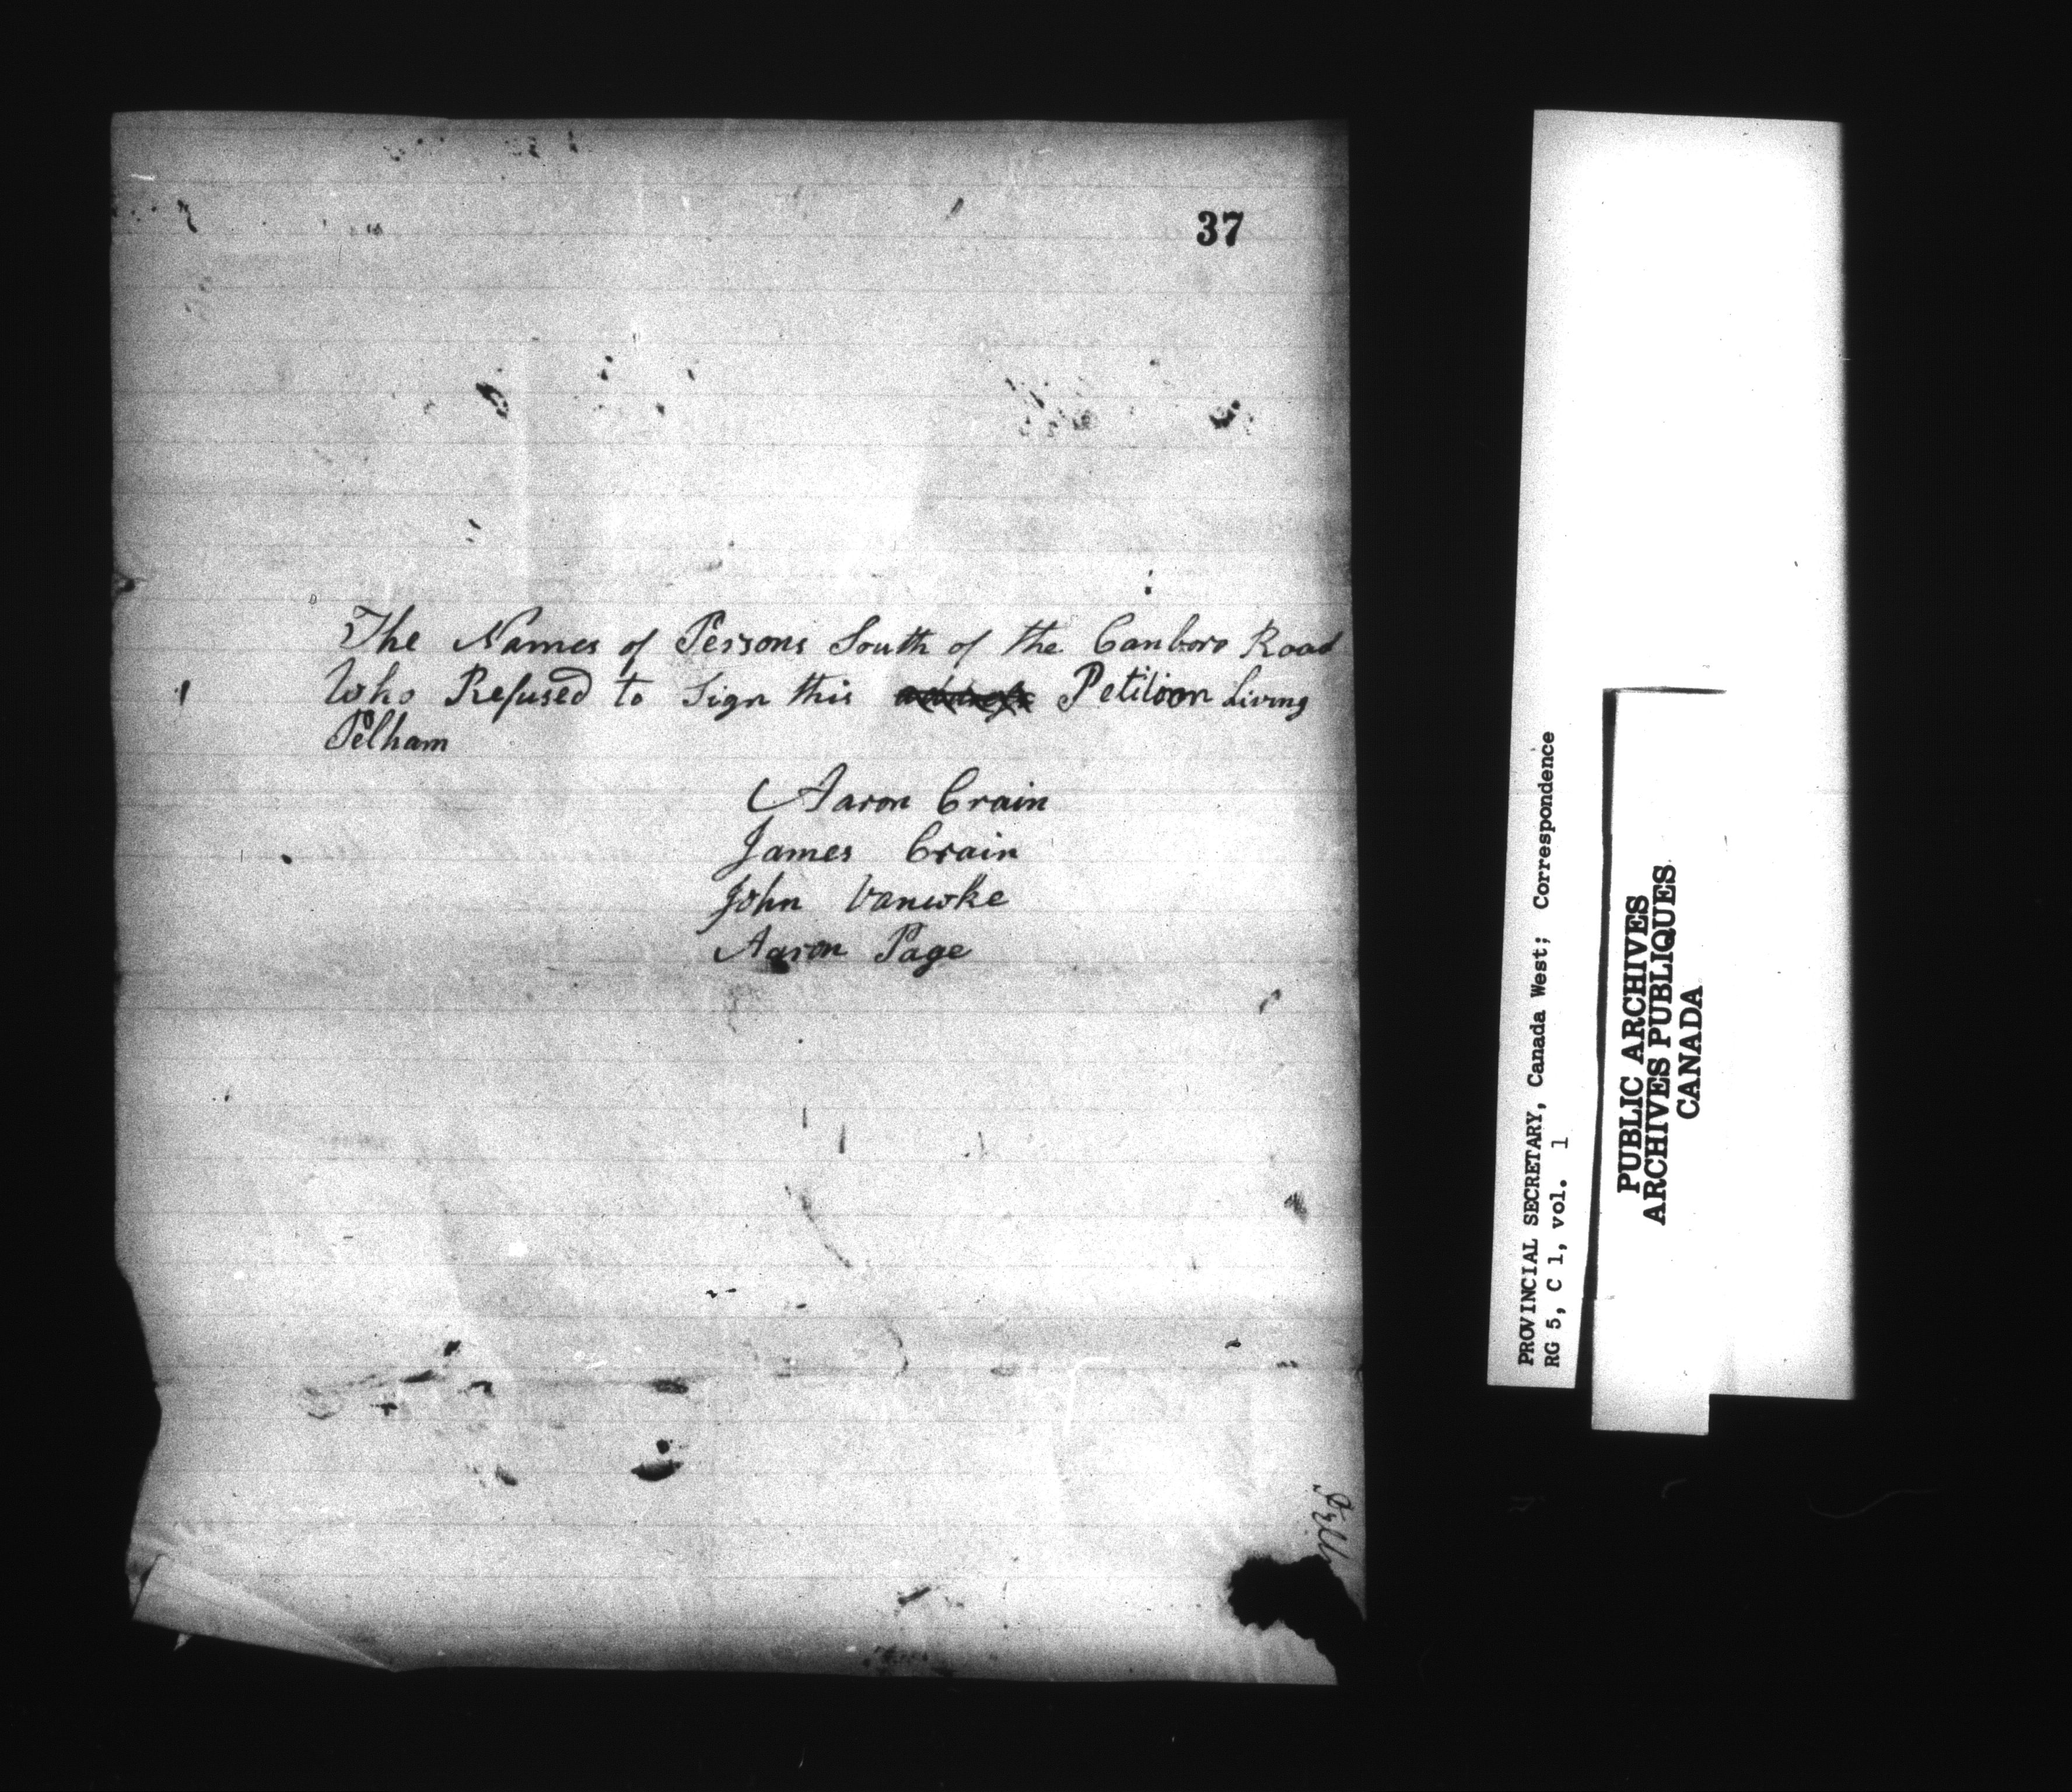 37
The Names of Persons South of the Canboro Road
Who Refused to Sign this Petition Living
Pelham
Aaron Crain
James Crain
John Vanwke
Aaron Page
PROVINCIAL SECRETARY, Canada West; Correspondence
RG 5, C 1, vol. 1
PUBLIC ARCHIVES
ARCHIVES PUBLIQUES
CANADA